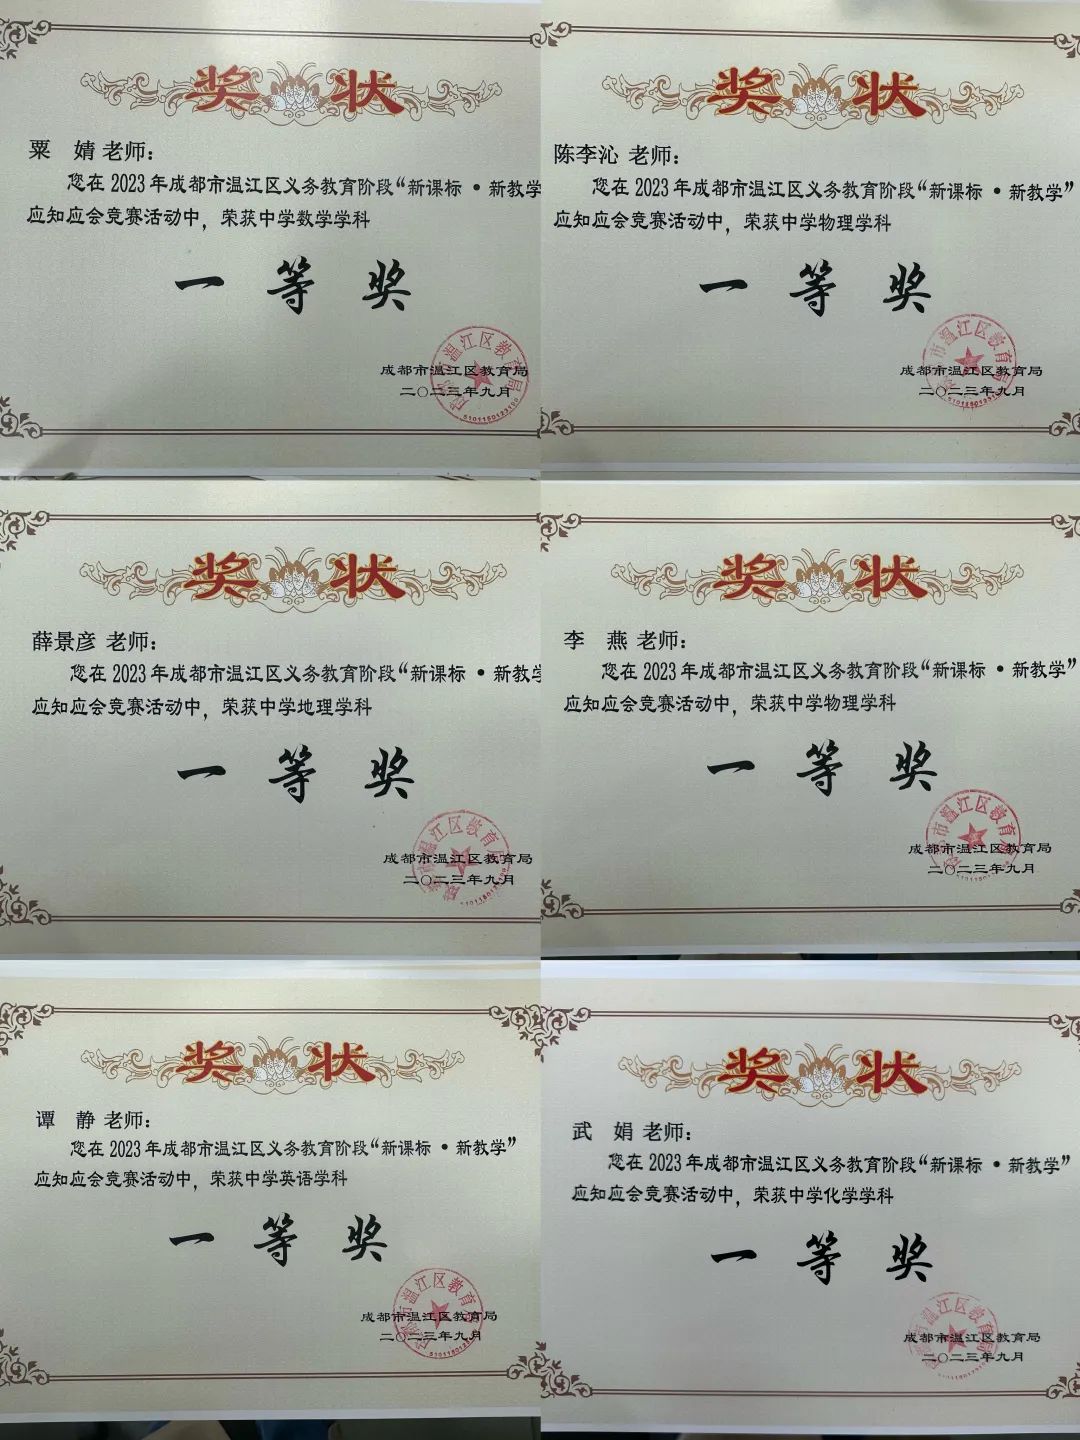 奖状
粟 婧 老师：
您在2023年成都市温江区义务教育阶段“新课标·新教学
应知应会竞赛活动中，荣获中学数学学科
一等奖
成都市温江区教育局
二〇二三年九月
奖状
陈李沁 老师：
您在2023年成都市温江区义务教育阶段“新课标·新教学”
应知应会竞赛活动中，荣获中学物理学科
一等奖
成都市温江区教育局
二〇二三年九月
奖状
薛景彦 老师：
您在2023年成都市温江区义务教育阶段“新课标·新教学
应知应会竞赛活动中，荣获中学地理学科
一等奖
成都市温江区教育局
二〇二三年九月
奖状
李 燕 老师：
您在2023年成都市温江区义务教育阶段“新课标·新教学”
应知应会竞赛活动中，荣获中学物理学科
一等奖
成都市温江区教育局
二〇二三年九月
奖状
谭 静 老师：
您在2023年成都市温江区义务教育阶段“新课标·新教学”
应知应会竞赛活动中，荣获中学英语学科
一等奖
成都市温江区教育局
二〇二三年九月
奖状
武 娟 老师：
您在2023年成都市温江区义务教育阶段“新课标·新教学”
应知应会竞赛活动中，荣获中学化学学科
一等奖
成都市温江区教育局
二〇二三年九月